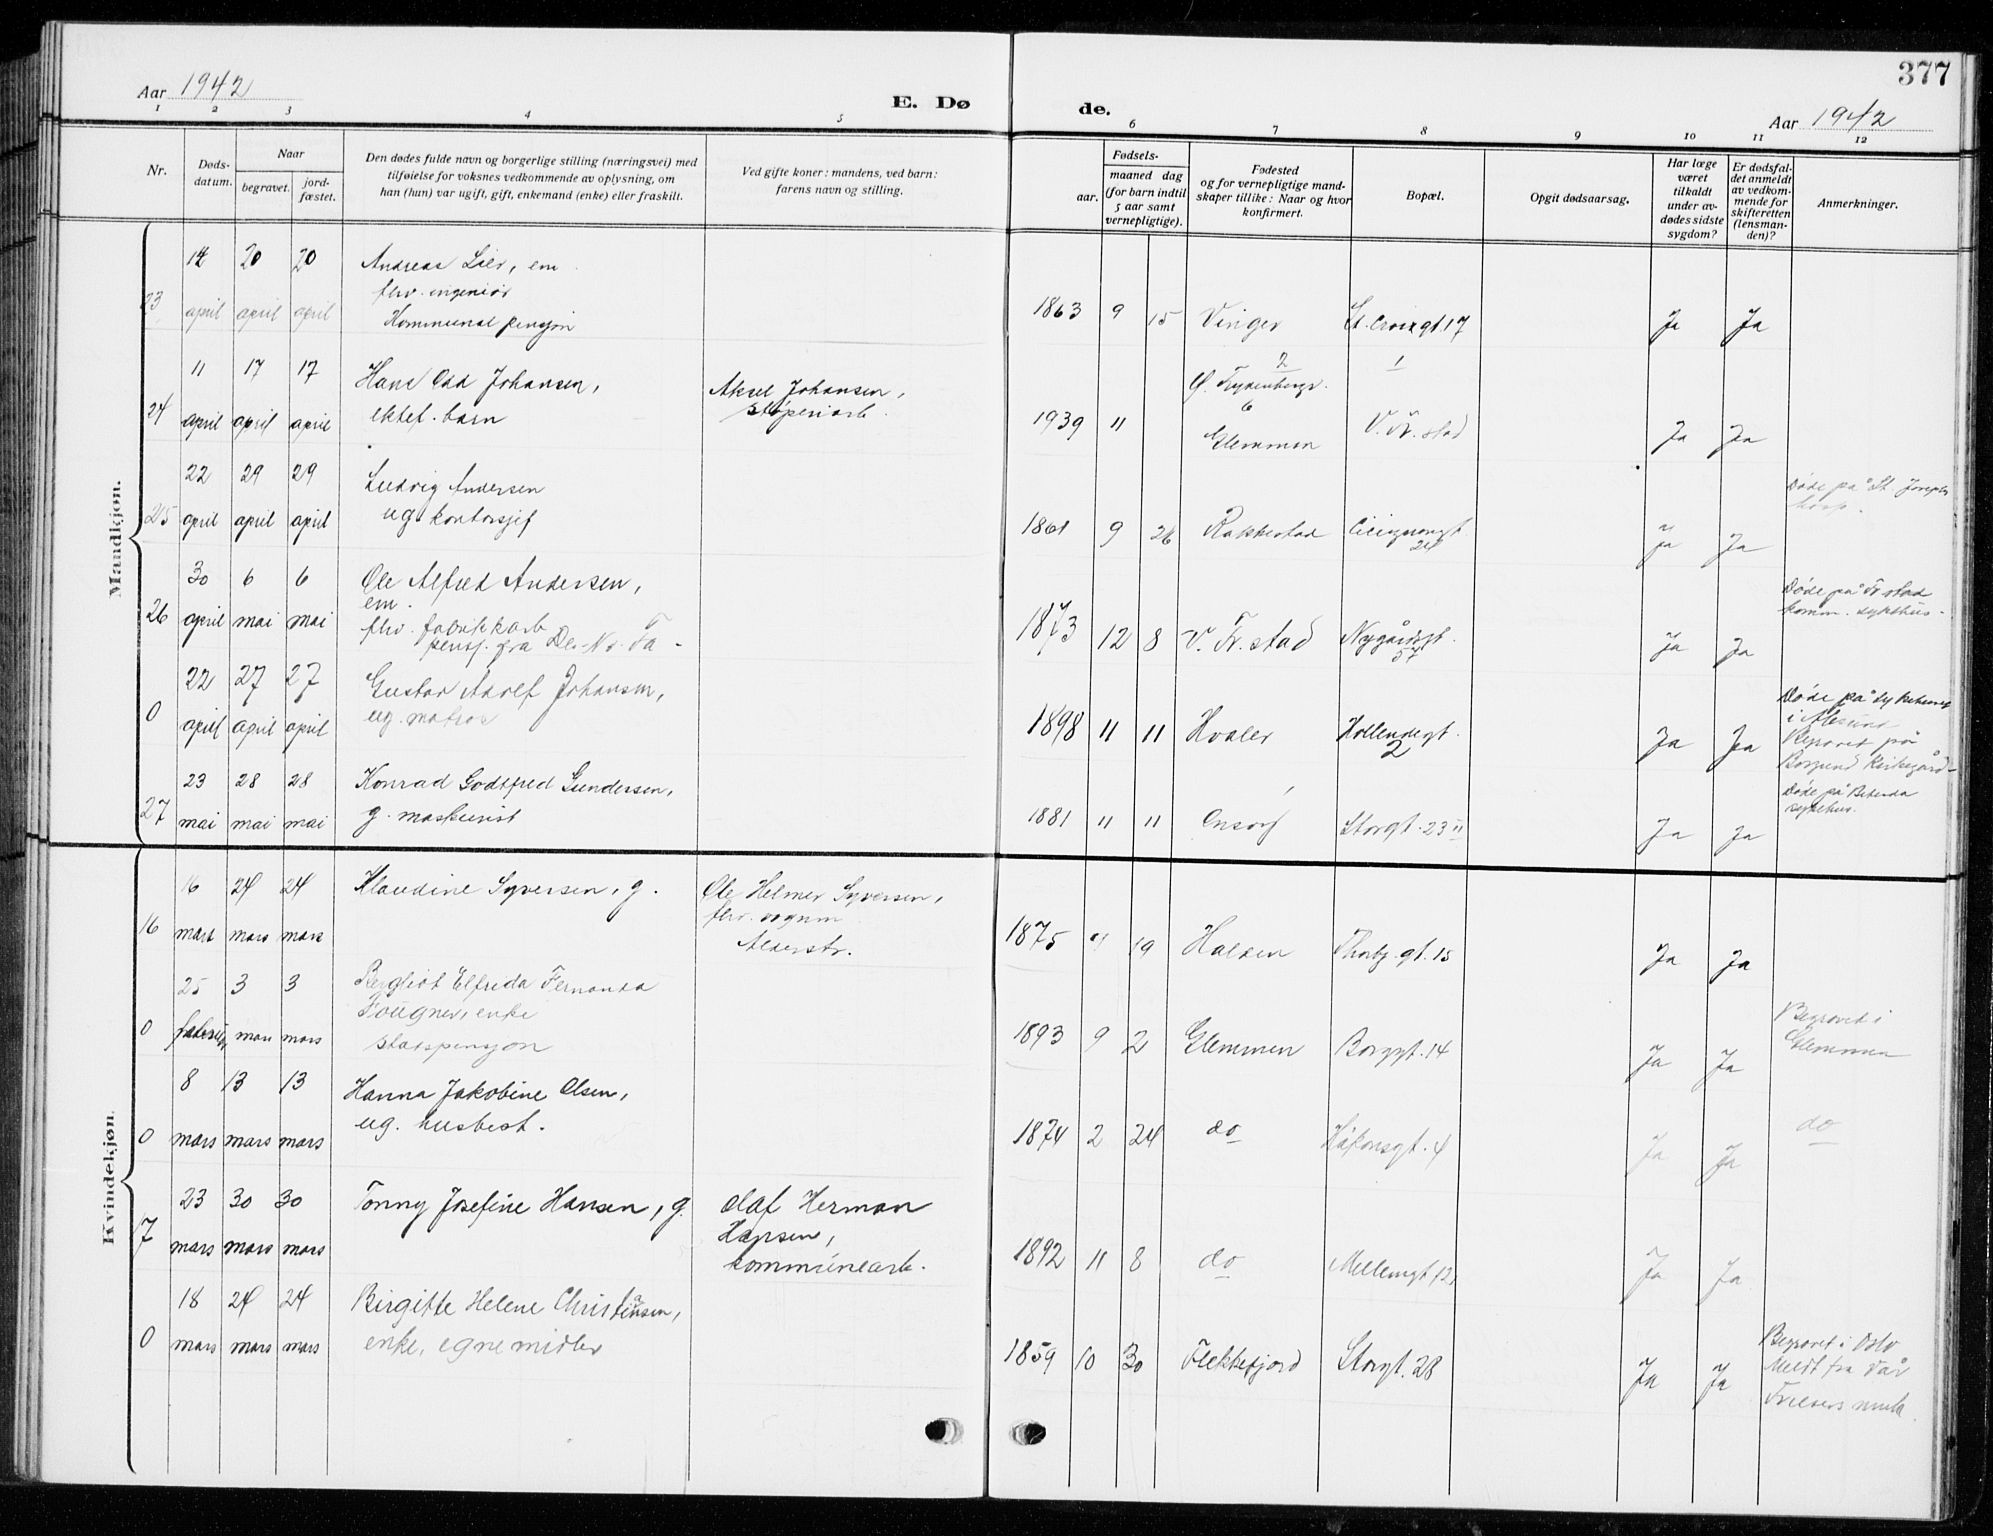 377
Aar 1942
E. Dø
de.
Aar 1942
1 2 3 4 5 6 7 8 9 10 11 12
Nr.
Døds-
datum.
Naar
begravet.
jord-
fæstet.
Den dødes fulde navn og borgerlige stilling (næringsvei) med
tilføielse for voksnes vedkommende av oplysning, om
han (hun) var ugift, gift, enkemand (enke) eller fraskilt.
Ved gifte koner: mandens, ved barn:
farens navn og stilling.
Fødsels-
aar.
maaned dag
(for barn indtil
5 aar samt
vernepligtige).
Fødested
og for vernepligtige mand-
skaper tillike: Naar og hvor
konfirmert.
Bopæl.
Opgit dødsaarsag.
Har læge
været
tilkaldt
under av-
dødes sidste
sygdom?
Er dødsfal-
det anmeldt
av vedkom-
mende for
skifteretten
(lensman-
den)?
Anmerkninger.
Mandkjøn.
14 20 20 Andreas Lier, em
flrv. ingeniør
23 april april april Kommunal pensjon 1863 9 15 Vinger St. Croixgt. 17 Ja Ja
11 17 17 Hans Odd Johansen, Aksel Johansen, 2 1
24 april april april ektef. barn støperiarb. 1939 11 6 Glemmen V. Fr. stad Ja Ja
22 29 29 Ludvig Andersen Døde på St. Josephs
25 april april april ug. kontorsjef 1861 9 26 Rakkestad Ja Ja hosp.
30 6 6 Ole Alfred Andersen, Døde på Fr stad
em. komm. sykehus.
26 april mai mai flrv. fabrikkarb 1873 12 8 V. Fr. stad Nygårdsgt. 57 Ja Ja
pensj. fra De. No. Fa.
22 27 27 Gustav Adolf Johansen, Døde på sykehuset
i Ålesund
0 april april april ug. matros 1898 11 11 Hvaler Hollendegt. 2 Ja Ja Begravet på
Borgund Kirkegård
23 28 28 Konrad Godtfred Gundersen, Døde på Betesda
27 mai mai mai g. maskinist 1881 11 11 Onsøy Storgt. 23 II Ja Ja sykehus.
Kvindekjøn.
16 24 24 Klaudine Syversen, g. Ole Helmer Syversen,
flrv. vognm
16 mars mars mars Alderstr. 1875 19 Halden Thorbj. gt. 15 Ja Ja
25 3 3 Bergliot Elfrida Fernanda
Fougner, enke Begravet i
0 februar mars mars statspensjon 1893 9 2 Glemmen Borggt. 14 Ja Ja Glemmen
8 13 13 Hanna Jakobine Olsen,
0 mars mars mars ug. husbest. 1874 2 24 do Håkonsgt. 4 Ja Ja do
23 30 30 Tonny Josefine Hansen, g. Olaf Herman
Hansen,
17 mars mars mars kommunearb. 1892 11 8 do Mellemgt 12 Ja Ja
18 24 24 Birgitte Helene Christiansen, Begravet i Oslo
0 mars mars mars enke, egne midler 1859 10 30 Flekkefjord Storgt. 28 Ja Ja Meldt fra Vår
Frelsers menh.